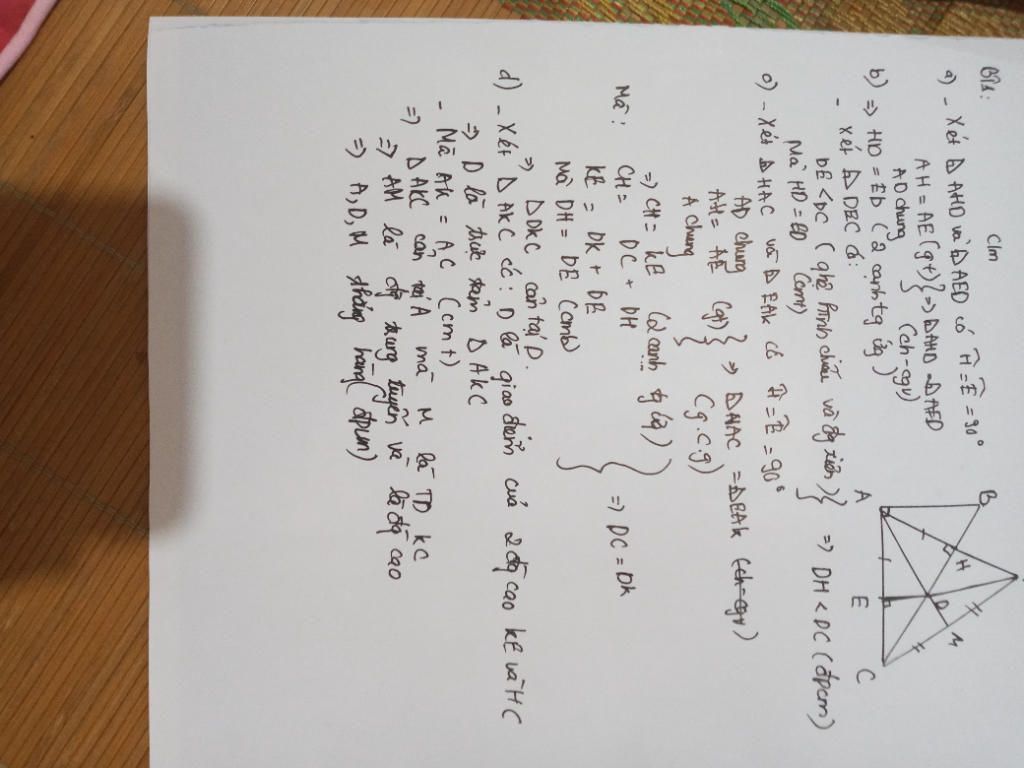 Bài:
Clm
a) - Xét Δ AHD và Δ AED có Ĥ = Ê = 90°
AH = AE (gt) } => Δ AHD = Δ AED
AD chung (ch-cgv)
b) => HD = ED (2 cạnh tg ứg)
- Xét Δ DEC có:
DE < DC (qhệ hình chiếu và đg xiên) } => DH < DC (đpcm)
Mà HD = ED (cmt)
c) - Xét Δ HAC và Δ EAK có Ĥ = Ê = 90°
AD chung
AH = AE (gt) } => Δ HAC = Δ EAK (ch-cgv)
A chung (g.c.g)
=> CH = KE (2 cạnh tg ứg)
Mà: CH = DC + DH
KE = DK + DE } => DC = DK
Mà DH = DE (cmb)
=> Δ DKC cân tại D.
d) - Xét Δ AKC có: D là giao điểm của 2 đg cao KE và HC
=> D là trực tâm Δ AKC
- Mà AK = AC (cmt)
=> Δ AKC cân tại A mà M là TD KC
=> AM là đg trung tuyến và là đg cao
=> A, D, M thẳng hàng (đpcm)
B
H
A
D
M
E
C